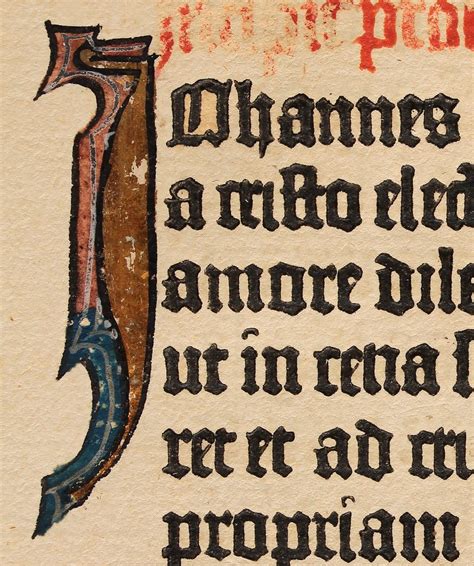 JOhannes
a cristo elec
amore dile
ut in cena
ret et ad cru
propriam